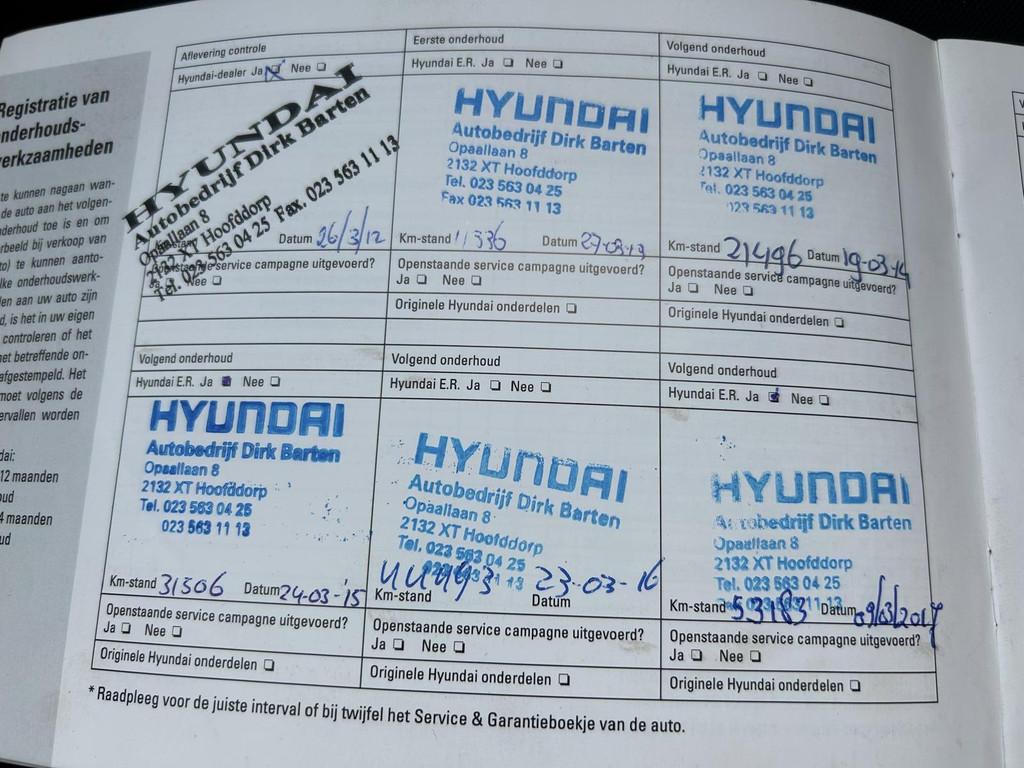 Registratie van
nderhouds-
erkzaamheden
te kunnen nagaan wan-
de auto aan het volgen-
derhoud toe is en om
rbeeld bij verkoop van
to) te kunnen aanto-
lke onderhoudswerk-
en aan uw auto zijn
d, is het in uw eigen
controleren of het
het betreffende on-
afgestempeld. Het
moet volgens de
ervallen worden
dai:
12 maanden
ud
4 maanden
ud
Aflevering controle
Hyundai-dealer Ja ☒ Nee ☐
HYUNDAI
Autobedrijf Dirk Barten
Opaallaan 8
2132 XT Hoofddorp
Tel. 023 563 04 25 Fax. 023 563 11 13
Datum 26/3/12
Openstaande service campagne uitgevoerd?
Ja ☐ Nee ☐
Eerste onderhoud
Hyundai E.R. Ja ☐ Nee ☐
HYUNDAI
Autobedrijf Dirk Barten
Opaallaan 8
2132 XT Hoofddorp
Tel. 023 563 04 25
Fax 023 563 11 13
Km-stand 11336 Datum 27-03-13
Openstaande service campagne uitgevoerd?
Ja ☐ Nee ☐
Originele Hyundai onderdelen ☐
Volgend onderhoud
Hyundai E.R. Ja ☐ Nee ☐
HYUNDAI
Autobedrijf Dirk Barten
Opaallaan 8
2132 XT Hoofddorp
Tel. 023 563 04 25
023 563 11 13
Km-stand 21496 Datum 19-03-14
Openstaande service campagne uitgevoerd?
Ja ☐ Nee ☐
Originele Hyundai onderdelen ☐
Volgend onderhoud
Hyundai E.R. Ja ☒ Nee ☐
HYUNDAI
Autobedrijf Dirk Barten
Opaallaan 8
2132 XT Hoofddorp
Tel. 023 563 04 25
023 563 11 13
Km-stand 31506 Datum 24-03-'15
Openstaande service campagne uitgevoerd?
Ja ☐ Nee ☐
Originele Hyundai onderdelen ☐
Volgend onderhoud
Hyundai E.R. Ja ☐ Nee ☐
HYUNDAI
Autobedrijf Dirk Barten
Opaallaan 8
2132 XT Hoofddorp
Tel. 023 563 04 25
023 563 11 13
Km-stand 44493 Datum 23-03-16
Openstaande service campagne uitgevoerd?
Ja ☐ Nee ☐
Originele Hyundai onderdelen ☐
Volgend onderhoud
Hyundai E.R. Ja ☒ Nee ☐
HYUNDAI
Autobedrijf Dirk Barten
Opaallaan 8
2132 XT Hoofddorp
Tel. 023 563 04 25
023 563 11 13
Km-stand 53183 Datum 09/03/2017
Openstaande service campagne uitgevoerd?
Ja ☐ Nee ☐
Originele Hyundai onderdelen ☐
* Raadpleeg voor de juiste interval of bij twijfel het Service & Garantieboekje van de auto.